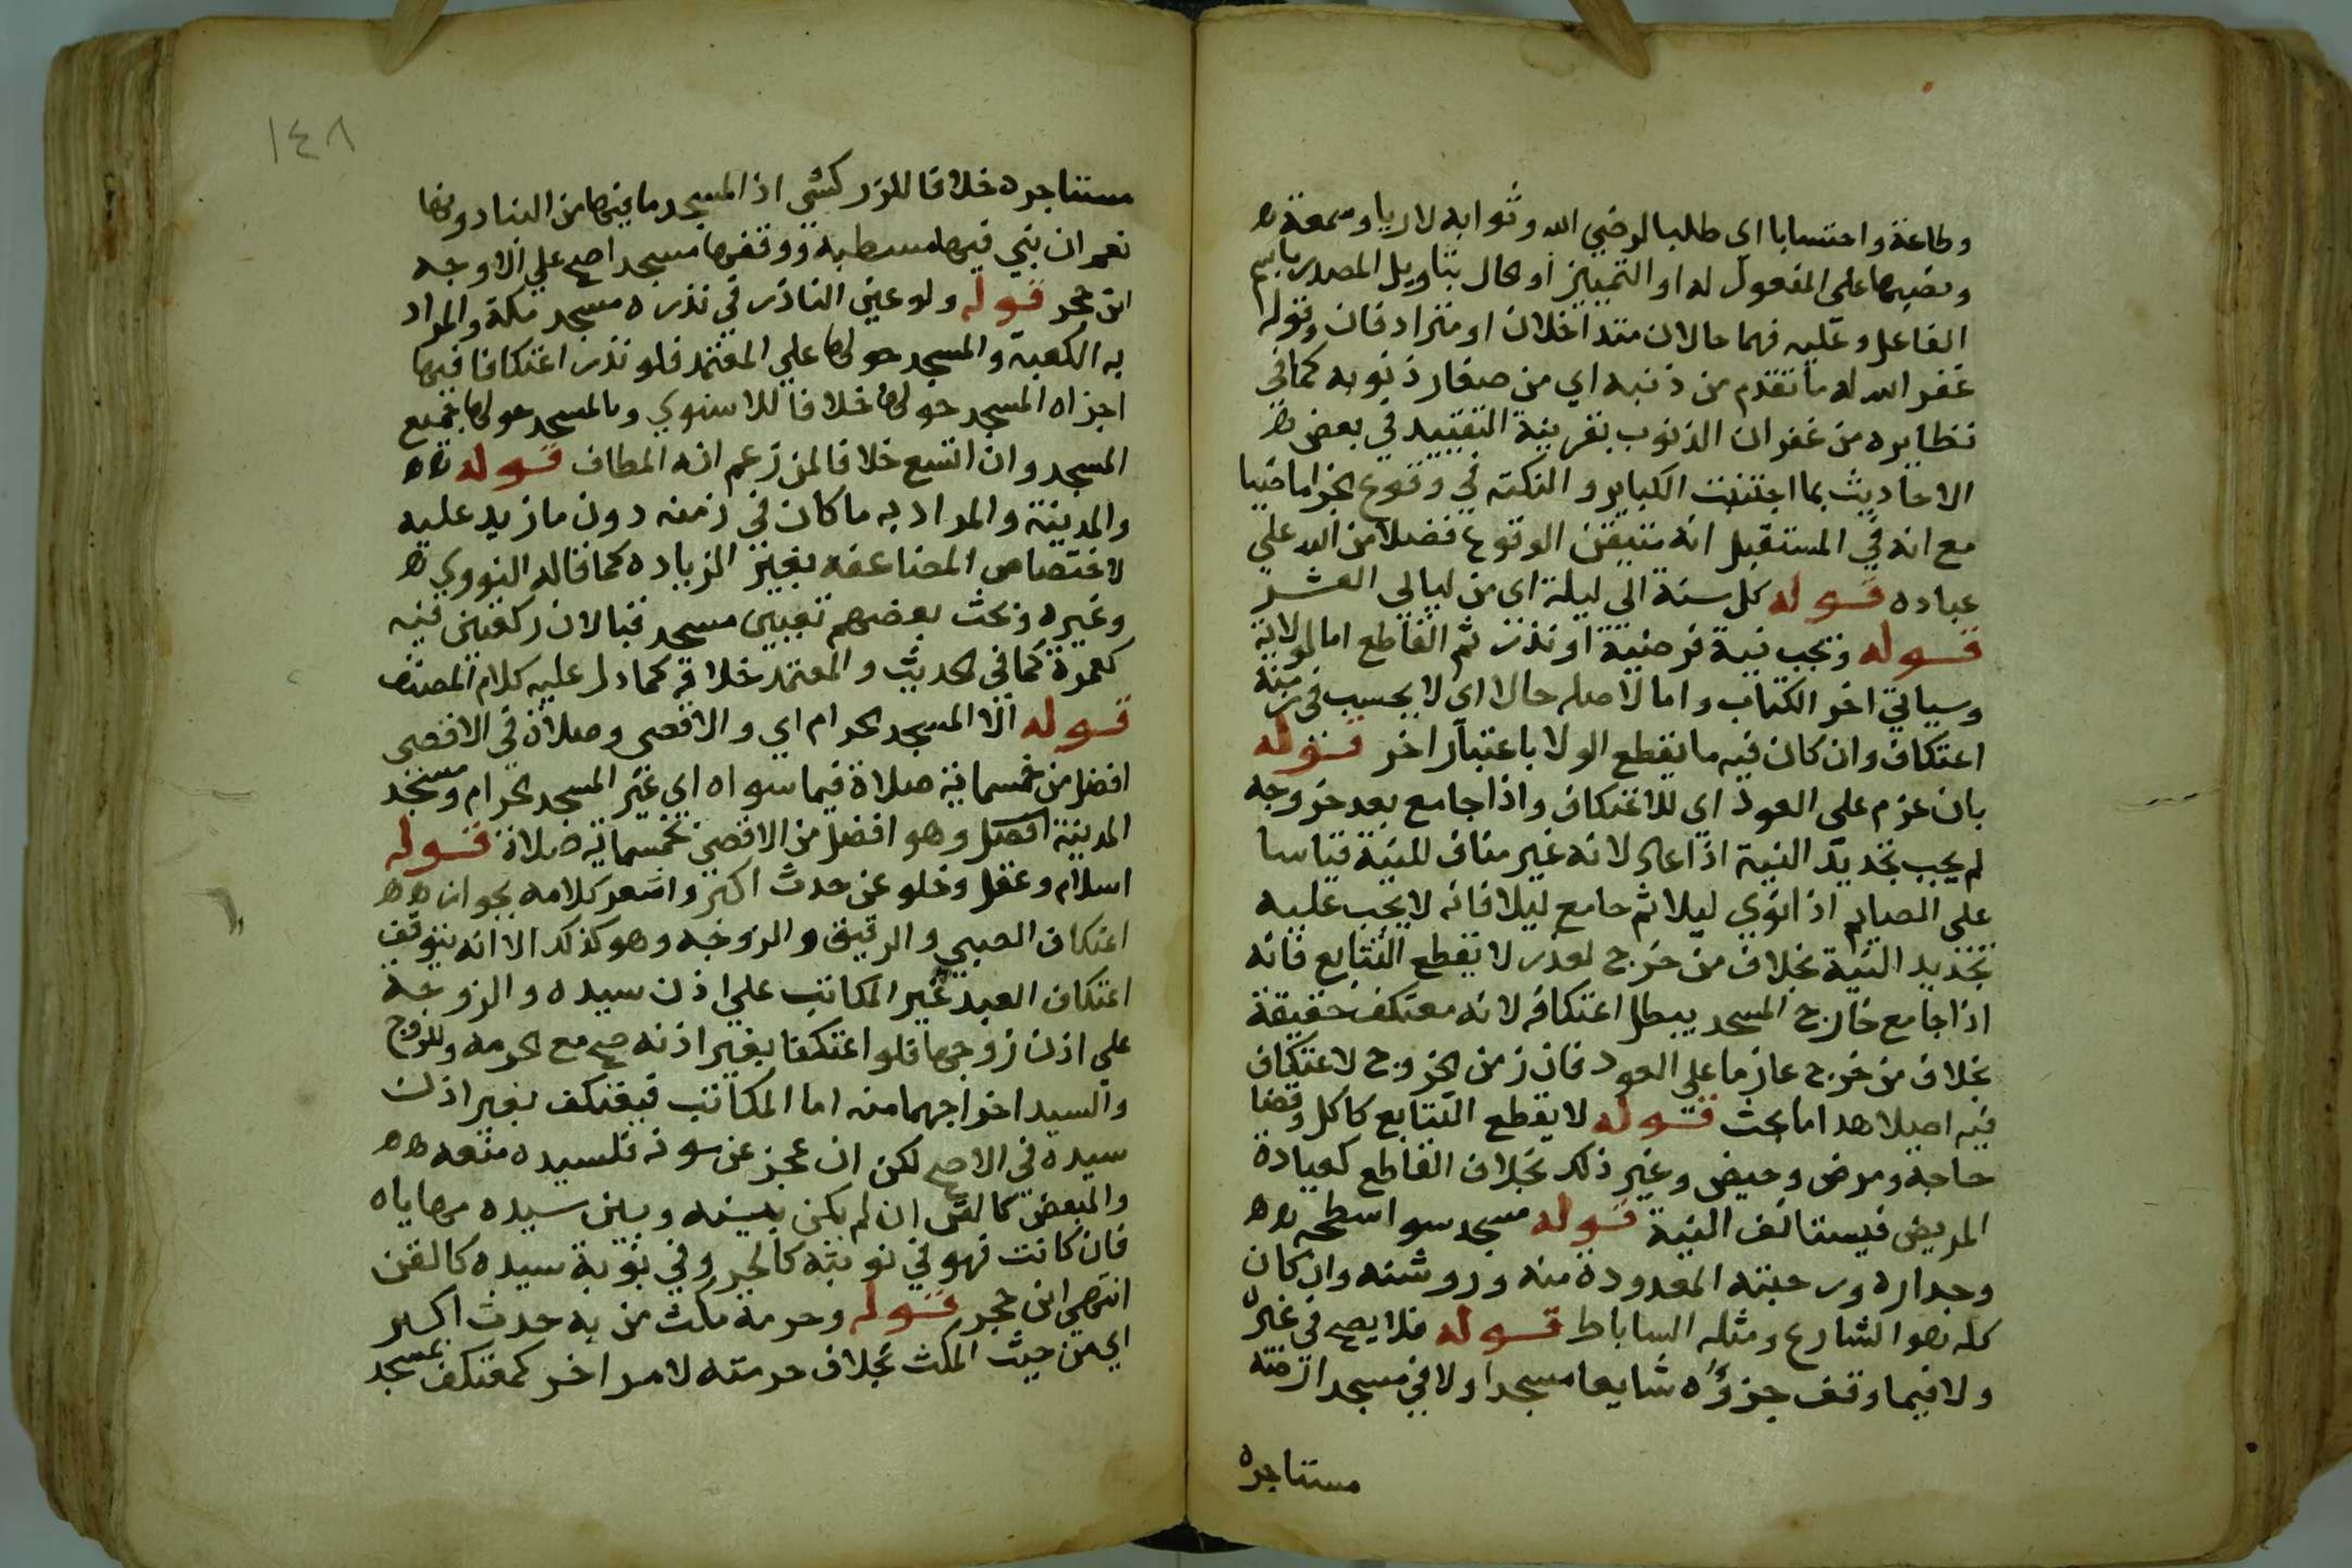 وطاعة واحتسابا اي طلبا لرضي الله وثوابه لا ريا وسمعة
ونصبهما علي المفعول له او التمييز او الحال بتاويل المصدر باسم
الفاعل وعليه فهما حالان متداخلان او مترادفان وقوله
غفر الله له ما تقدم من ذنبه اي من صغار ذنوبه كما في
نظايره من غفران الذنوب بقرينة التقييد في بعض
الاحاديث بما اجتنبت الكباير والنكته في وقوع الجزا ماضيا
مع انه في المستقبل انه متيقن الوقوع فضلا من الله علي
عباده قوله كل سنة الي ليلة اي من ليالي العشر
قوله وتجب نية فرضية او نذر ثم القاطع اما لموالاته
وسياتي اخر الكتاب واما لاصله حالا اي لا يحسب في زمنه
اعتكاف وان كان فيه ما يقطع الولا باعتبار اخر قوله
بان عزم علي العود اي للاعتكاف واذا جامع بعد خروجه
لم يجب تجديد النية اذا عاد لانه غير مناف للنية قياسا
علي الصايم اذا نوي ليلا ثم جامع ليلا فانه لا يجب عليه
تجديد النية بخلاف من خرج لعذر لا يقطع التتابع فانه
اذا جامع خارج المسجد يبطل اعتكافه لانه معتكف حقيقة
بخلاف من خرج عازما علي العود فان زمن الخروج لا اعتكاف
فيه اصلا هذا ما بحث قوله لا يقطع التتابع كاكل وقضا
حاجة ومرض وحيض وغير ذلك بخلاف القاطع كعيادة
المريض فيستانف النية قوله مسجد سوا سطحه
وجداره ورحبته المعدودة منه وروشنه وان كان
كله نحو الشارع ومثله الساباط قوله فلا يصح في غيره
ولا فيما وقف جزؤه شايعا مسجدا ولا في مسجد ارضه
مستاجره
١٤٨
مستاجره خلافا للزركشي اذ المسجد ما فيها من البنا دونها
نعم ان بني فيها مسطبة ووقفها مسجدا صح علي الاوجه
ابن حجر قوله ولو عين الناذر في نذره مسجد مكة والمراد
به الكعبة والمسجد حولها علي المعتمد فلو نذر اعتكافا فيها
اجزاه المسجد حولها خلافا للاسنوي وبالمسجد حولها جميع
المسجد وان اتسع خلافا لمن زعم انه المطاف قوله
والمدينة والمراد به ما كان في زمنه دون ما زيد عليه
لاختصاص المضاعفه بغير الزياده كما قاله النووي
وغيره وبحث بعضهم تعيين مسجد قبا لان ركعتين فيه
كعمرة كما في الحديث والمعتمد خلافه كما دل عليه كلام المصنف
قوله الا المسجد الحرام اي والاقصي وصلاة في الاقصي
افضل من خمسماية صلاة فيما سواه اي غير المسجد الحرام ومسجد
المدينة افضل وهو افضل من الاقصي بخمسماية صلاة قوله
اسلام وعقل وخلو عن حدث اكبر واشعر كلامه بجواز
اعتكاف الصبي والرقيق والزوجه وهو كذلك الا انه يتوقف
اعتكاف العبد غير المكاتب علي اذن سيده والزوجة
علي اذن زوجها فلو اعتكفا بغير اذنه صح مع الحرمه وللزوج
والسيد اخراجهما منه اما المكاتب فيعتكف بغير اذن
سيده في الاصح لكن ان عجز عن سونه فلسيده منعه
والمبعض كالقن ان لم يكن بينه وبين سيده مهاياه
فان كانت فهو في نوبته كالحر وفي نوبة سيده كالقن
انتهي ابن حجر قوله وحرمة مكث من به حدث اكبر
اي من حيث المكث بخلاف حرمته لامر اخر كمعتكف بمسجد